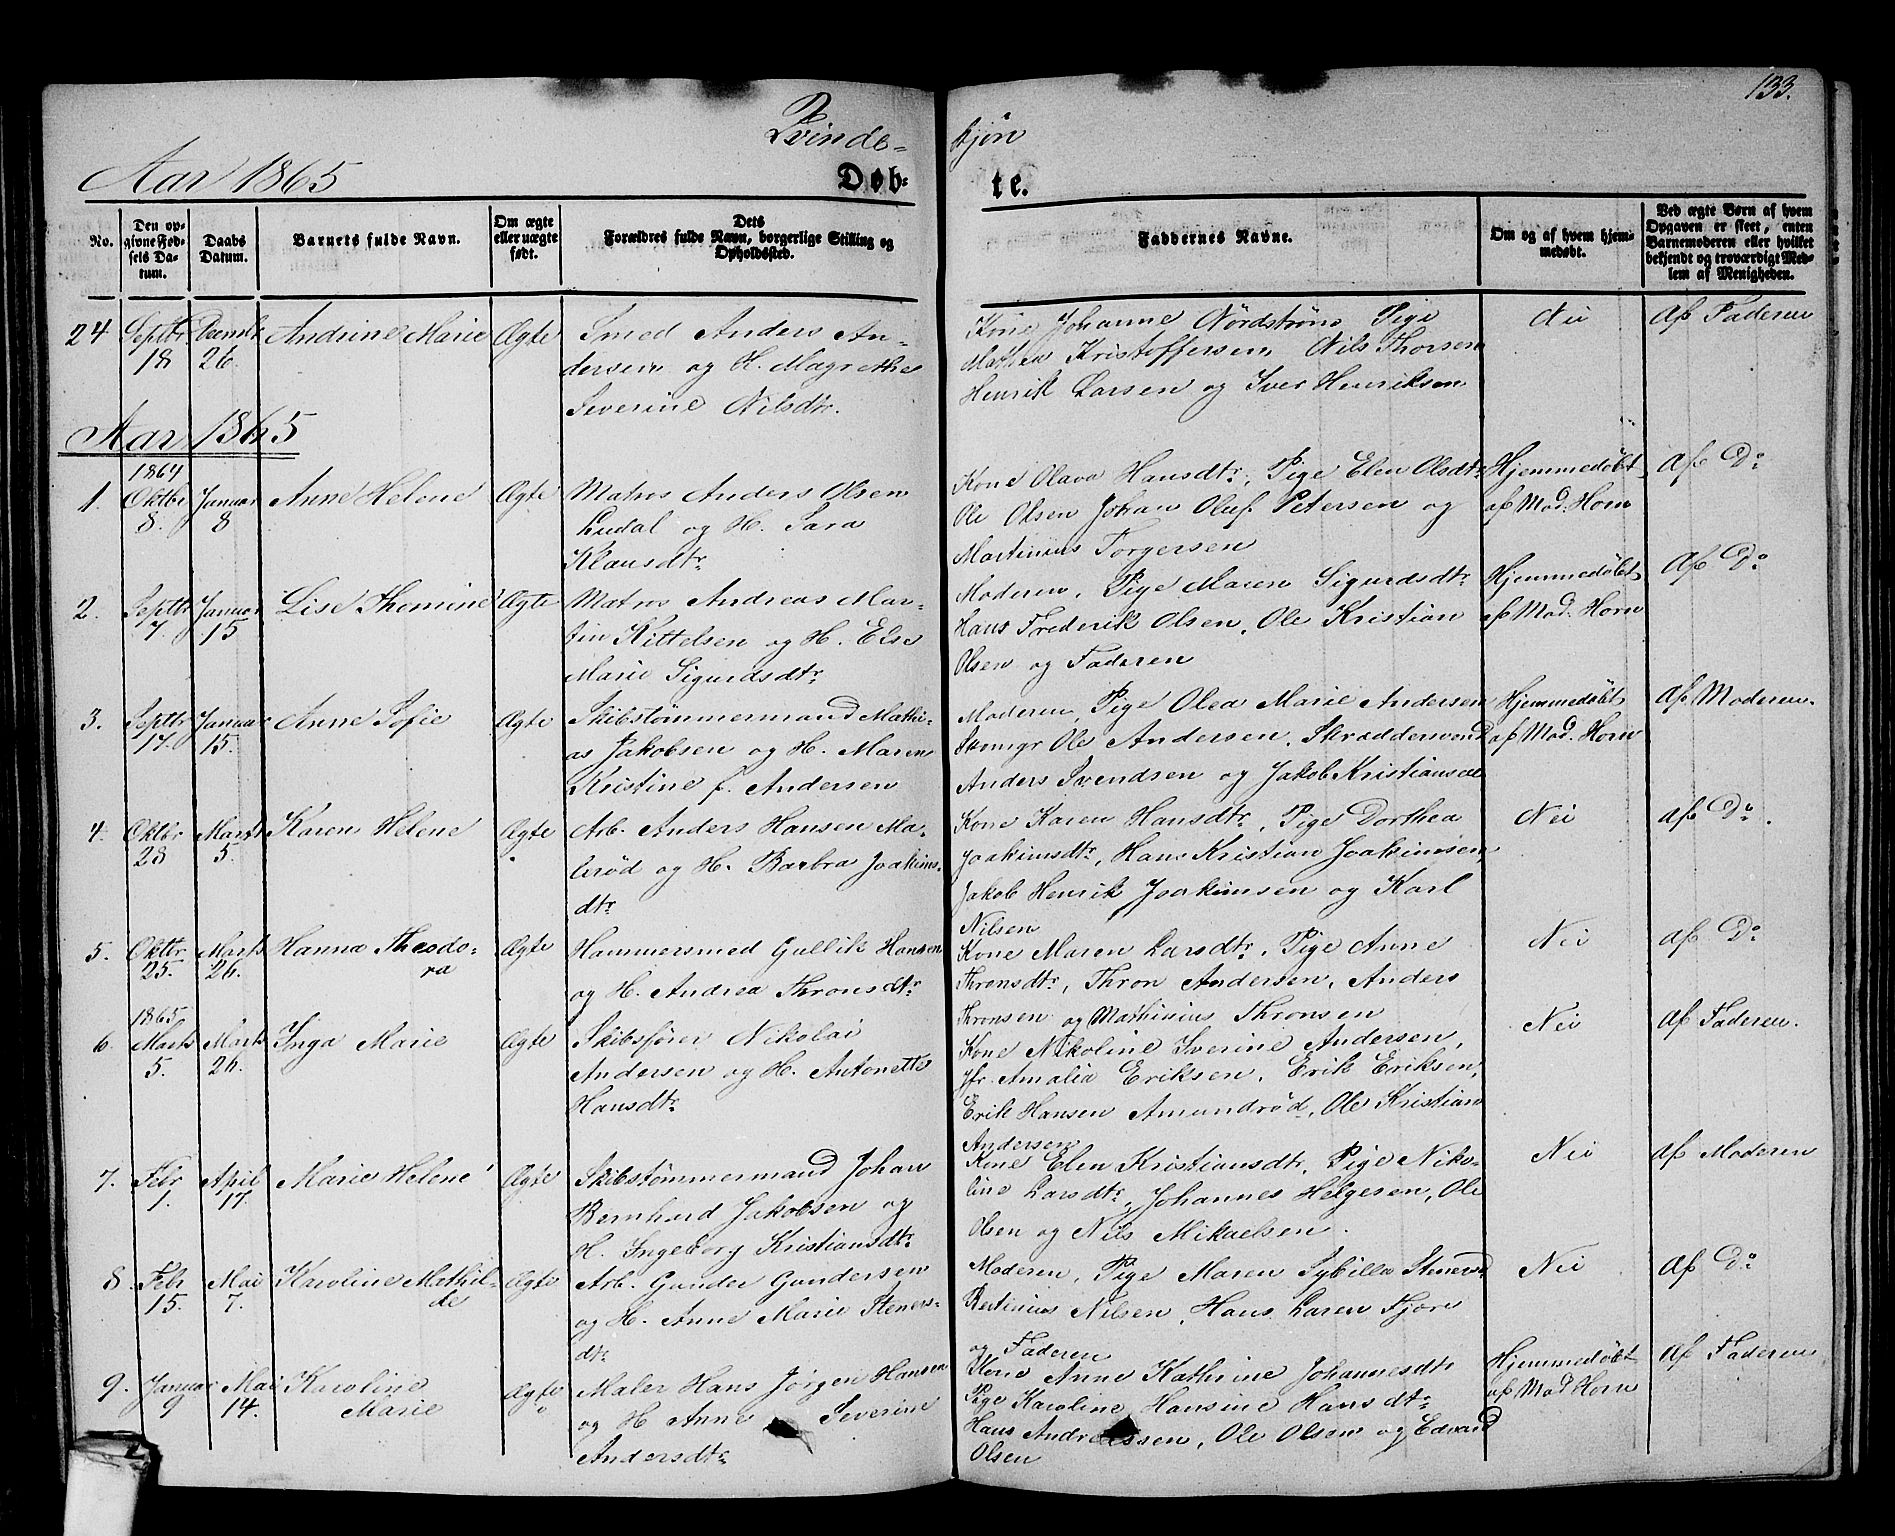 133.
Qvinde-kjøn
Aar 1865
Døb-te.
No.
Den op-
givne Fød-
sels Da-
tum.
Daabs
Datum.
Barnets fulde Navn.
Om ægte
eller uægte
født.
Dets
Forældres fulde Navn, borgerlige Stilling og
Opholdssted.
Faddernes Navne.
Om og af hvem hjem-
medøbt.
Ved ægte Børn af hvem
Opgaven er skeet, enten
Barnemoderen eller hvilket
bekjendt og troværdigt Med-
lem af Menigheden.
24 Septbr 18 Decmbr 26 Andrine Marie Ægte
Smed Anders An-
dersen og H. Magrethe
Severine Nilsdtr.
Kone Johanne Nordstrøm, Pige
Mathea Kristoffersen, Nils Thorsen
Henrik Larsen og Iver Henriksen
Nei
Af Faderen
Aar 1865
1864
1. Oktbr 8. Januar 8 Anne Helene Ægte
Matros Anders Olsen
Ludal og H. Sara
Klausdtr.
Kone Olava Hansdtr, Pige Elen Olsdtr
Ole Olsen Johan Oluf Petersen og
Martinius Torgersen
Hjemmedøbt
af Mad. Horn
Af Do
2. Septbr 7. Januar 15 Lise Thomine Ægte
Matros Andreas Mar-
tin Kittelsen og H. Else
Marie Sigurdsdtr.
Moderen, Pige Maren Sigurdsdtr
Hans Frederik Olsen, Ole Kristian
Olsen og Faderen
Hjemmedøbt
af Mad. Horn
Af Do
3. Septbr 17. Januar 15. Anne Sofie Ægte
Skibstømmermand Mathi-
as Jakobsen og H. Maren
Kristine f. Andersen
Moderen, Pige Olea Marie Andersen
Ole Andersen, Skræddersvend
Anders Svendsen og Jakob Kristiansen
Hjemmedøbt
af Mad. Horn
Af Moderen.
4. Oktbr 28 Marts 5. Karen Helene Ægte
Arb. Anders Hansen Ma-
lerød og H. Barbra Joakims-
dtr.
Kone Karen Hansdtr, Pige Dorthea
Joakimsdtr, Hans Kristian Joakimsen,
Jakob Henrik Joakimsen og Karl
Nilsen
Nei
Af Do.
5. Oktbr 25. Marts 26. Hanna Theodo-
ra Ægte
Hammersmed Gullik Hansen
og H. Andrea Thronsdtr
Kone Maren Larsdtr, Pige Anne
Thronsdtr, Thron Andersen, Anders
Thronsen og Mathinius Thronsen
Nei
Af Do
1865
6. Marts 5. Marts 26. Inga Marie Ægte
Skibsfører Nikolai
Andersen og H. Antonette
Hansdtr.
Kone Nikoline Iverine Andersen,
Jfr. Amalia Eriksen, Erik Eriksen,
Erik Hansen Amundrød, Ole Kristian
Andersen
Nei
Af Faderen.
7. Febr 1. April 17. Marie Helene Ægte
Skibstømmermand Johan
Bernhard Jakobsen og
H. Ingeborg Kristiansdtr.
Kone Elen Kristiansdtr, Pige Niko-
line Larsdtr, Johannes Helgesen, Ole
Olsen og Nils Mikaelsen.
Nei
Af Moderen
8. Febr 15. Mai 7. Karoline Mathil-
de Ægte
Arb. Gunder Gundersen
og H. Anne Marie Steners-
dtr.
Moderen, Pige Maren Sybilla Stenersd
Bertinius Nilsen, Hans Laren Fjøre
og Faderen
Nei
Af Do
9. Januar 9 Mai 14. Karoline
Marie Ægte
Maler Hans Jørgen Hansen
og H Anne Severine
Andersdtr.
Kone Anne Kathrine Johannesdtr
Pige Karoline Hansine Hansdtr
Hans Andreassen, Ole Olsen og Edvard
Olsen
Hjemmedøbt
af Mad Horn
Af Faderen